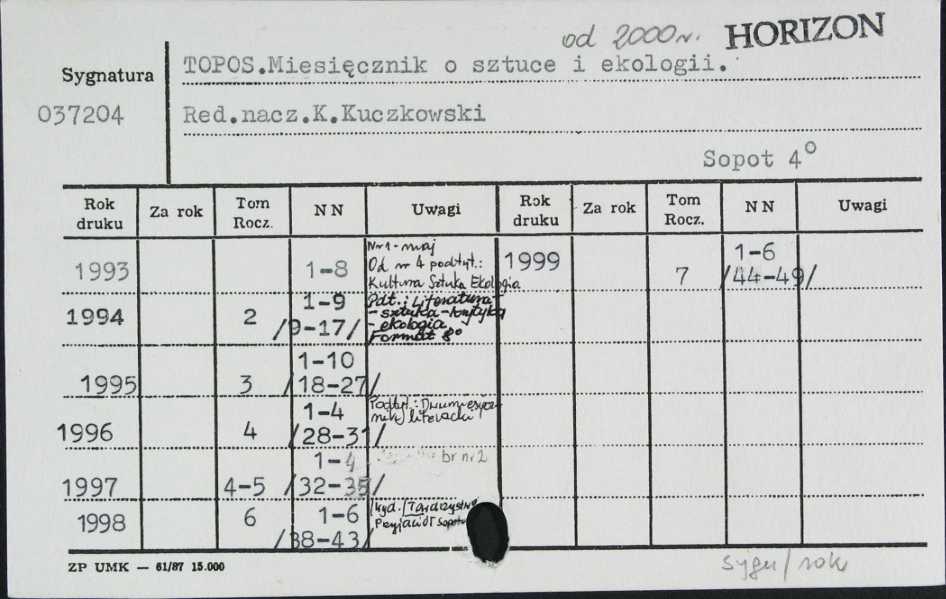 od 2000 r. HORIZON
Sygnatura TOPOS.Miesięcznik o sztuce i ekologii.
037204 Red.nacz.K.Kuczkowski
Sopot 4°
Rok druku Za rok Tom Rocz. NN Uwagi Rok druku Za rok Tom Rocz. NN Uwagi
1993 1-8 Nr 1 - maj
Od nr 4 podtyt.:
Kultura Sztuka Ekologia
1999 7 1-6 /44-49/
1994 2 1-9 /9-17/ Pdt.: Literatura-
-sztuka-krytyka
-ekologia
Format 8°
1995 3 1-10 /18-27/
1996 4 1-4 /28-31/ Podtyt.: Dwumiesięcz-
nik literacki
1997 4-5 1-4 /32-35/ br nr 2
1998 6 1-6 /38-43/ Wyd. Towarzystwo
Przyjaciół Sopotu
ZP UMK — 61/87 15.000
sygn/rok